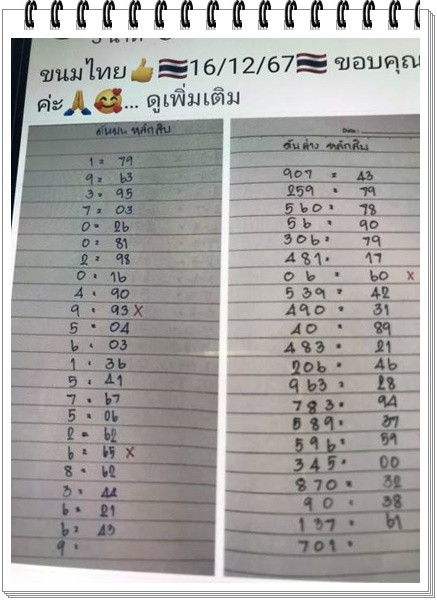 ขนมไทย👍🇹🇭16/12/67🇹🇭 ขอบคุณ
ค่ะ🙏🥰... ดูเพิ่มเติม
ดับบน หลักสิบ
1 = 79
9 = 63
3 = 95
7 = 03
0 = 26
0 = 81
2 = 98
0 = 16
4 = 90
9 = 93 x
5 = 04
6 = 03
1 = 36
5 = 41
7 = 67
5 = 06
2 = 62
6 = 65 x
8 = 62
3 = 44
6 = 21
6 = 43
9 =
Date:
ดับล่าง หลักสิบ
907 = 43
259 = 79
560 = 78
56 = 90
306 = 79
481 = 17
06 = 60 x
539 = 42
490 = 31
40 = 89
483 = 21
206 = 46
963 = 28
783 = 94
589 = 37
596 = 59
345 = 00
870 = 32
90 = 38
137 = 61
701 =